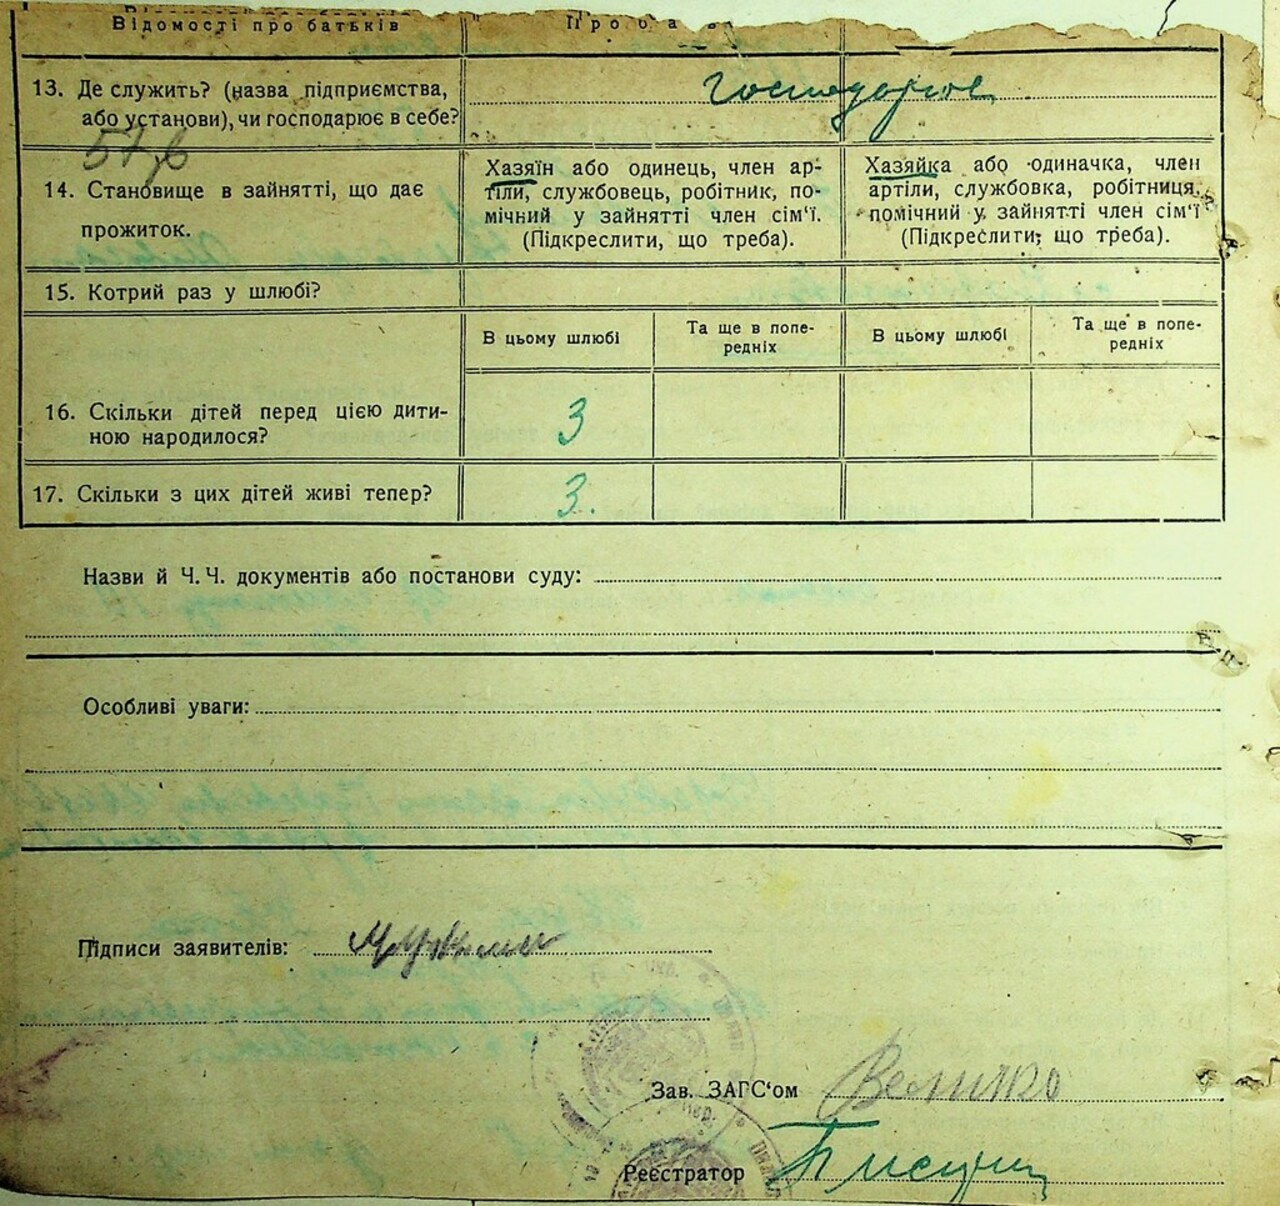 Відомості про батьків
Про ба
13. Де служить? (назва підприємства, або установи), чи господарює в себе?
господарює
57,6
14. Становище в зайнятті, що дає прожиток.
Хазяїн або одинець, член ар-
тіли, службовець, робітник, по-
мічний у зайнятті член сім'ї.
(Підкреслити, що треба).
Хазяйка або одиначка, член
артіли, службовка, робітниця,
помічний у зайнятті член сім'ї
(Підкреслити, що треба).
15. Котрий раз у шлюбі?
В цьому шлюбі
Та ще в попе-
редніх
В цьому шлюбі
Та ще в попе-
редніх
16. Скільки дітей перед цією дити-
ною народилося?
3
17. Скільки з цих дітей живі тепер?
3.
Назви й Ч.Ч. документів або постанови суду:
Особливі уваги:
Підписи заявителів:
Зав. ЗАГС'ом Величко
Реєстратор